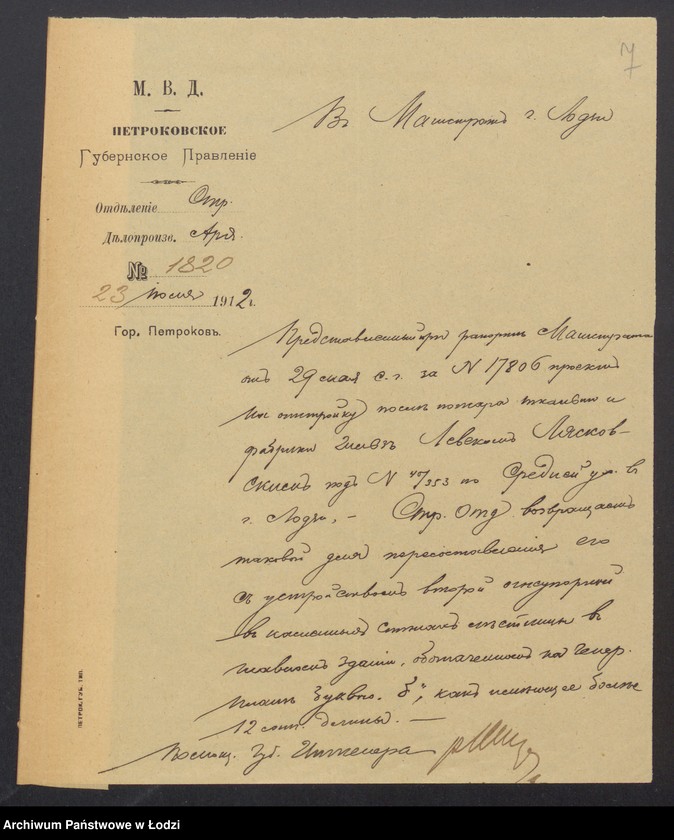 7
М. В. Д.
ПЕТРОКОВСКОЕ
Губернское Правленіе
Отдѣленіе Стр.
Дѣлопроизв.
№ 1820
23 Іюля 1912 г.
Гор. Петроковъ.
Въ Магистратъ г. Лодзи
Представленный при рапортѣ Магистрата
отъ 29 мая с. г. за N 17806 проектъ
на отстройку послѣ пожара ткацкой
фабрики Лясков-
скимъ подъ N 40/353 по Средней ул. въ
г. Лодзи, – Стр. Отд. возвращаетъ
таковой для пересоставленія его
съ устройствомъ второй огнеупорной
въ каменныхъ стѣнахъ лѣстницы въ
главномъ зданіи, обозначенномъ на генер.
планѣ буквою „б“, какъ имѣющее болѣе
12 саж. длины. —
Помощ. Губ. Инженера
ПЕТРОК. ГУБ. ТИП.
Archiwum Państwowe w Łodzi